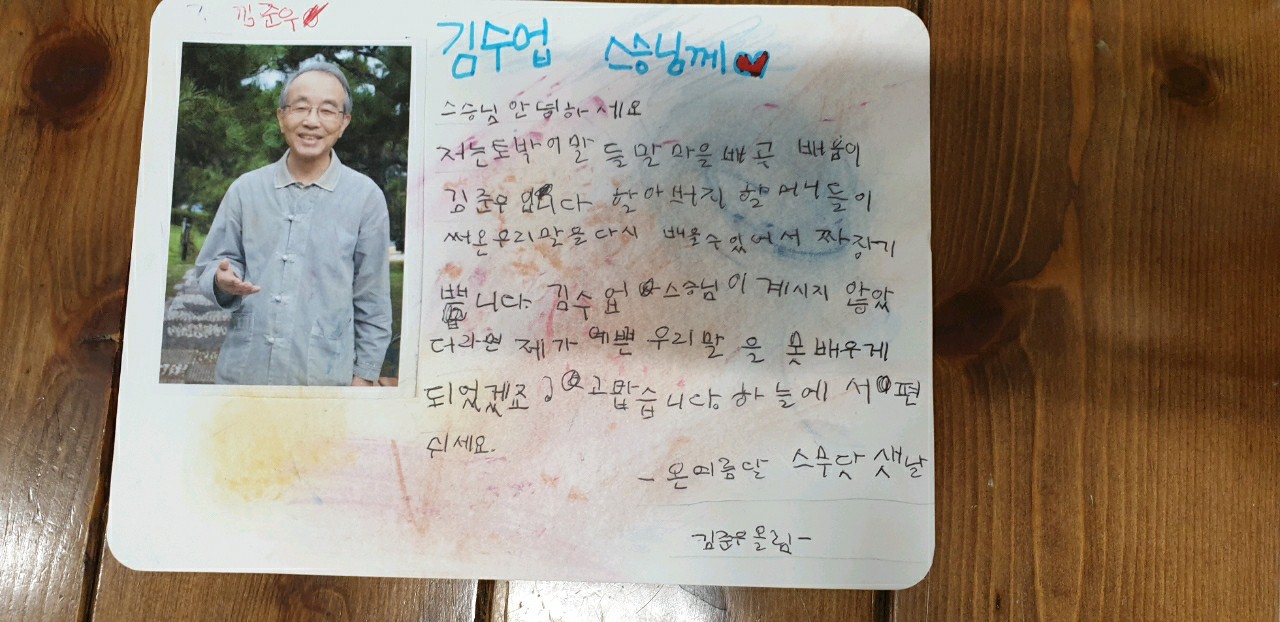 김준우
김수업 스승님께
스승님 안녕하세요
저는 토박이말 들말마을배곳 배움이
김준우입니다 할아버지 할머니들이
써온 우리말을 다시 배울 수 있어서 짜장 기
쁩니다. 김수업 스승님이 계시지 않았
더라면 제가 예쁜 우리말을 못 배우게
되었겠죠? 고맙습니다 하늘에서 편
쉬세요.
- 온여름달 스무닷샛날
김준우 올림-